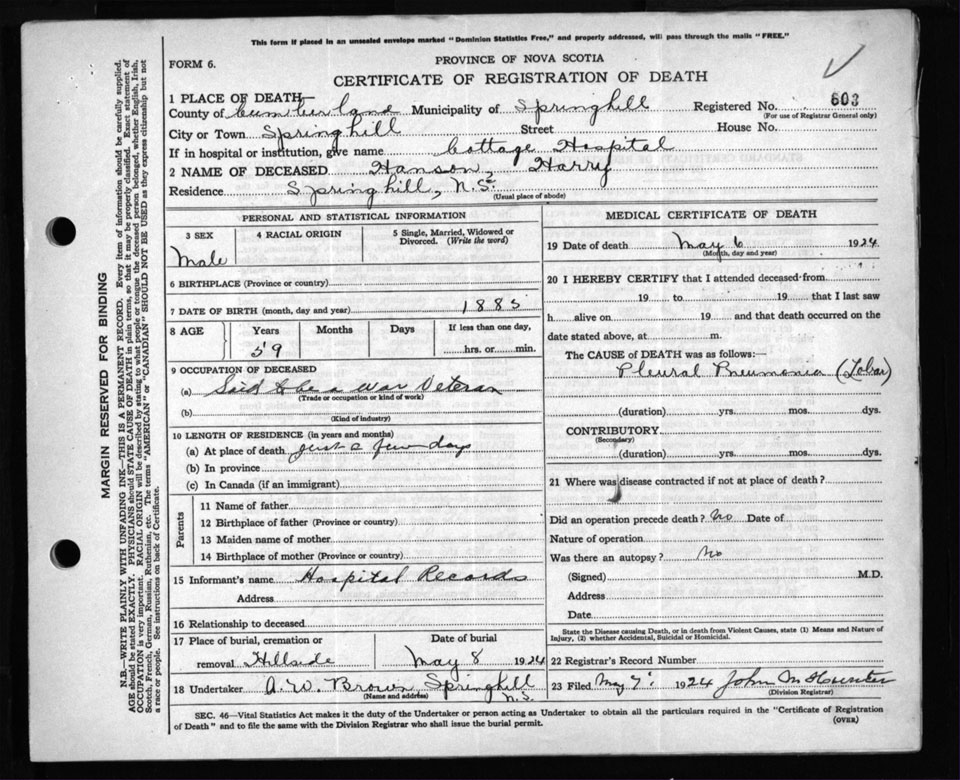 This form if placed in an unsealed envelope marked "Dominion Statistics Free," and properly addressed, will pass through the mails "FREE."
FORM 6.
PROVINCE OF NOVA SCOTIA
CERTIFICATE OF REGISTRATION OF DEATH
1 PLACE OF DEATH—
County of Cumberland Municipality of Springhill Registered No. 603
(For use of Registrar General only)
City or Town Springhill Street House No.
If in hospital or institution, give name Cottage Hospital
2 NAME OF DECEASED Hanson, Harry
Residence Springhill, N.S.
(Usual place of abode)
PERSONAL AND STATISTICAL INFORMATION
3 SEX 4 RACIAL ORIGIN 5 Single, Married, Widowed or Divorced. (Write the word)
Male
6 BIRTHPLACE (Province or country)
7 DATE OF BIRTH (month, day and year) 1885
8 AGE Years Months Days If less than one day,
59 hrs. or min.
9 OCCUPATION OF DECEASED
(a) Said to be a War Veteran
(Trade or occupation or kind of work)
(b)
(Kind of industry)
10 LENGTH OF RESIDENCE (in years and months)
(a) At place of death just a few days
(b) In province
(c) In Canada (if an immigrant)
Parents
11 Name of father
12 Birthplace of father (Province or country)
13 Maiden name of mother
14 Birthplace of mother (Province or country)
15 Informant's name Hospital Records
Address
16 Relationship to deceased
17 Place of burial, cremation or Date of burial
removal Hillside May 8 1924
18 Undertaker A. W. Brown, Springhill N.S.
(Name and address)
MEDICAL CERTIFICATE OF DEATH
19 Date of death May 6 1924
(Month, day and year)
20 I HEREBY CERTIFY that I attended deceased from
19 to 19 that I last saw
h alive on 19 and that death occurred on the
date stated above, at m.
The CAUSE of DEATH was as follows:—
Pleural Pneumonia (Lobar)
(duration) yrs. mos. dys.
CONTRIBUTORY
(Secondary)
(duration) yrs. mos. dys.
21 Where was disease contracted if not at place of death?
Did an operation precede death? No Date of
Nature of operation
Was there an autopsy? No
(Signed) M.D.
Address
Date
State the Disease causing Death, or in death from Violent Causes, state (1) Means and Nature of
Injury, (2) whether Accidental, Suicidal or Homicidal.
22 Registrar's Record Number
23 Filed May 7 1924 John M Hunter
(Division Registrar)
SEC. 46—Vital Statistics Act makes it the duty of the Undertaker or person acting as Undertaker to obtain all the particulars required in the "Certificate of Registration
of Death" and to file the same with the Division Registrar who shall issue the burial permit.
(OVER)
MARGIN RESERVED FOR BINDING
N.B.—WRITE PLAINLY WITH UNFADING INK—THIS IS A PERMANENT RECORD. Every item of information should be carefully supplied.
AGE should be stated EXACTLY. PHYSICIANS should STATE CAUSE OF DEATH in plain terms, so that it may be properly classified. Exact statement of
OCCUPATION is very important. RACIAL ORIGIN will be described by stating to what people or tongue the deceased person belonged, whether English, Irish,
Scotch, French, German, Russian, Ruthenian, etc. The terms "AMERICAN" or "CANADIAN" SHOULD NOT BE USED as they express citizenship but not
a race or people. See instructions on back of Certificate.